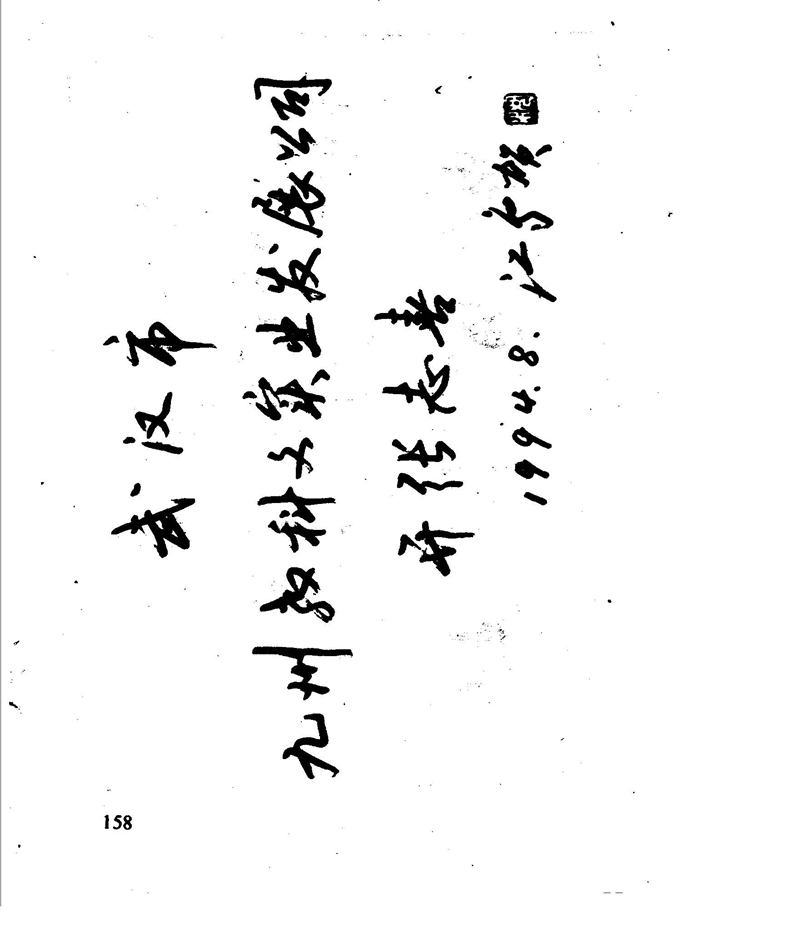 武汉市
九州教科文实业发展公司
开张志喜
1994.8. 江
158